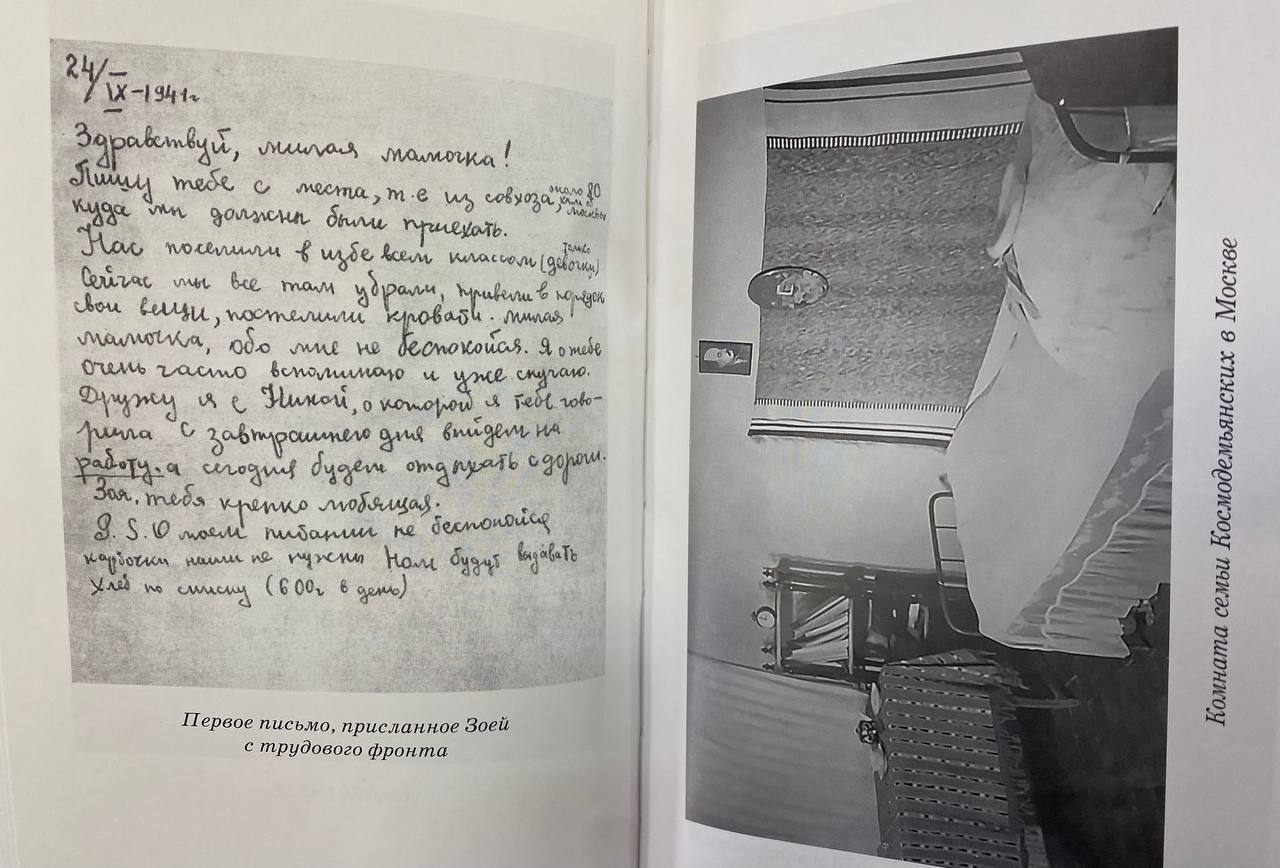 24/IX-1941г
Здравствуй, милая мамочка!
Пишу тебе с места, т.е из совхоза, около 80 клм от москвы
куда мы должны были приехать.
Нас поселили в избе всем классом (только девочки)
Сейчас мы все там убрали, привели в порядок
свои вещи, постелили кровати. милая
мамочка, обо мне не беспокойся. Я о тебе
очень часто вспоминаю и уже скучаю.
Дружу я с Ниной, о которой я тебе гово-
рила с завтрашнего дня выйдем на
работу, а сегодня будем отдыхать с дороги.
Зоя, тебя крепко любящая.
P.S. О моем питании не беспокойся
карточки наши не нужны Нам будут выдавать
хлеб по списку (600г в день)
Первое письмо, присланное Зоей
с трудового фронта
Комната семьи Космодемьянских в Москве